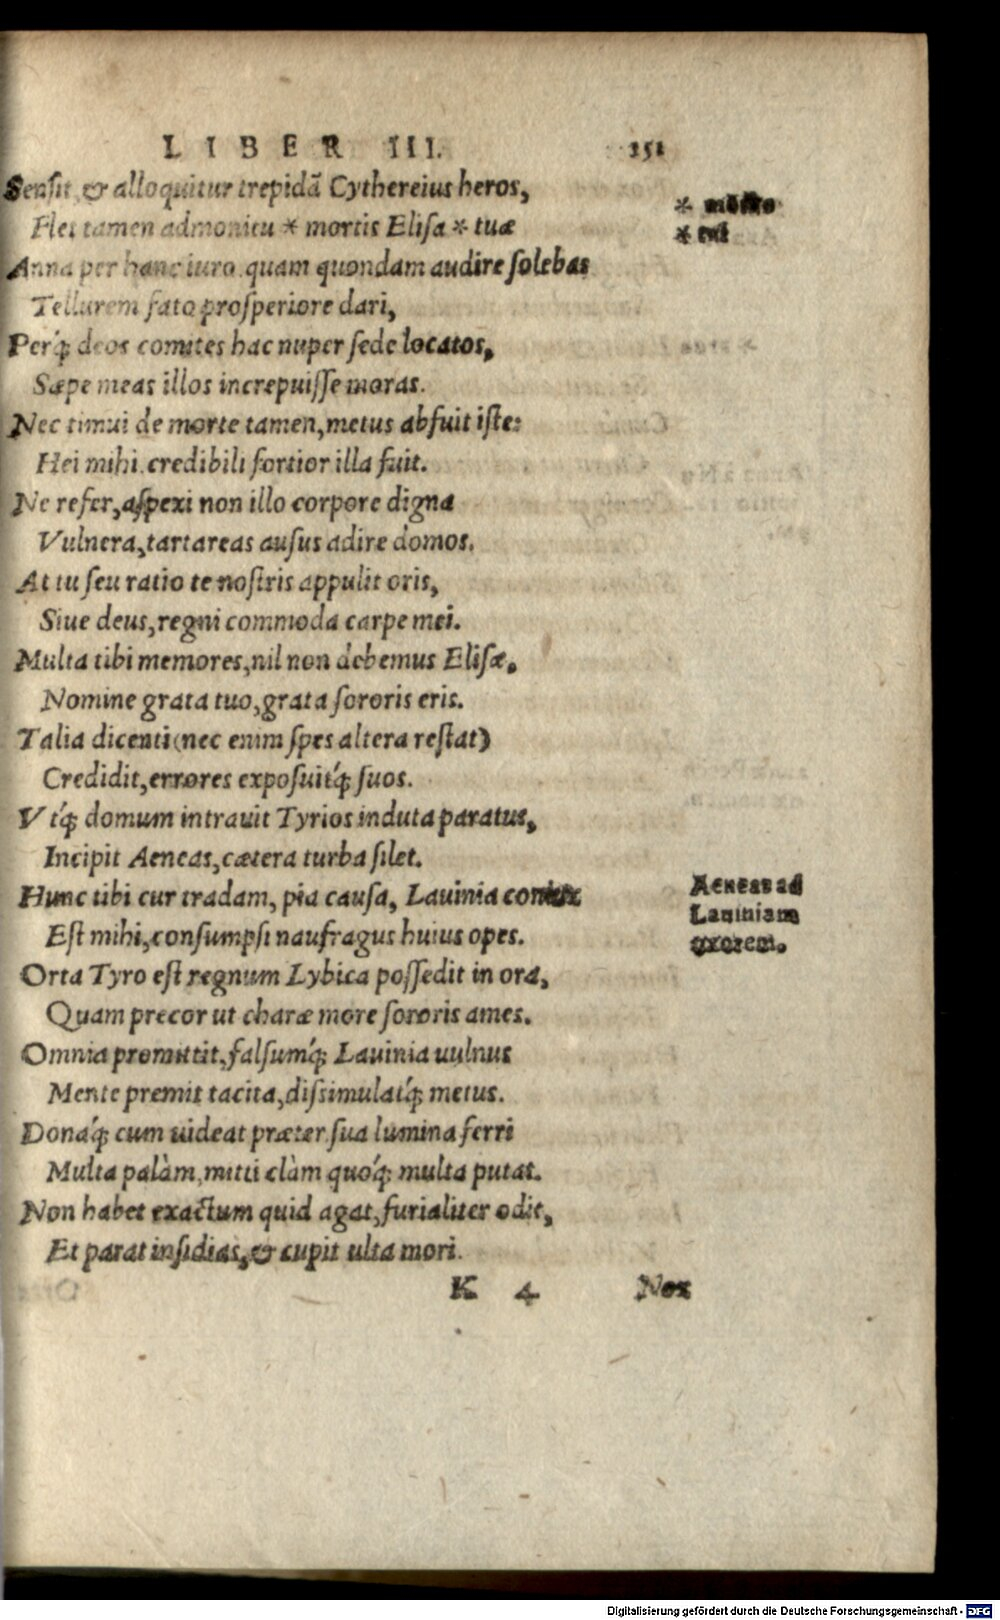 LIBER III. 151
Sensit, & alloquitur trepidã Cythereius heros,
Flet tamen admonitu * mortis Elisa * tuæ
* mœsto
* tui
Anna per hanc iuro, quam quondam audire solebas
Tellurem fato prosperiore dari,
Perq́; deos comites hac nuper sede locatos,
Sæpe meas illos increpuisse moras.
Nec timui de morte tamen, metus abfuit iste:
Hei mihi, credibili fortior illa fuit.
Ne refer, aspexi non illo corpore digna
Vulnera, tartareas ausus adire domos.
At tu seu ratio te nostris appulit oris,
Siue deus, regni commoda carpe mei.
Multa tibi memores, nil non debemus Elisæ,
Nomine grata tuo, grata sororis eris.
Talia dicenti (nec enim spes altera restat)
Credidit, errores exposuitq́; suos.
Vtq́; domum intrauit Tyrios induta paratus,
Incipit Aeneas, cætera turba silet.
Hunc tibi cur tradam, pia causa, Lauinia coniux
Aeneas ad
Lauiniam
uxorem.
Est mihi, consumpsi naufragus huius opes.
Orta Tyro est regnum Lybica possedit in ora,
Quam precor ut charæ more sororis ames.
Omnia promittit, falsumq́; Lauinia uulnus
Mente premit tacita, dissimulatq́; metus.
Donaq́; cum uideat præter sua lumina ferri
Multa palàm, mitti clàm quoq́; multa putat.
Non habet exactum quid agat, furialiter odit,
Et parat insidias, & cupit ulta mori.
K 4 Nox
Digitalisierung gefördert durch die Deutsche Forschungsgemeinschaft - DFG